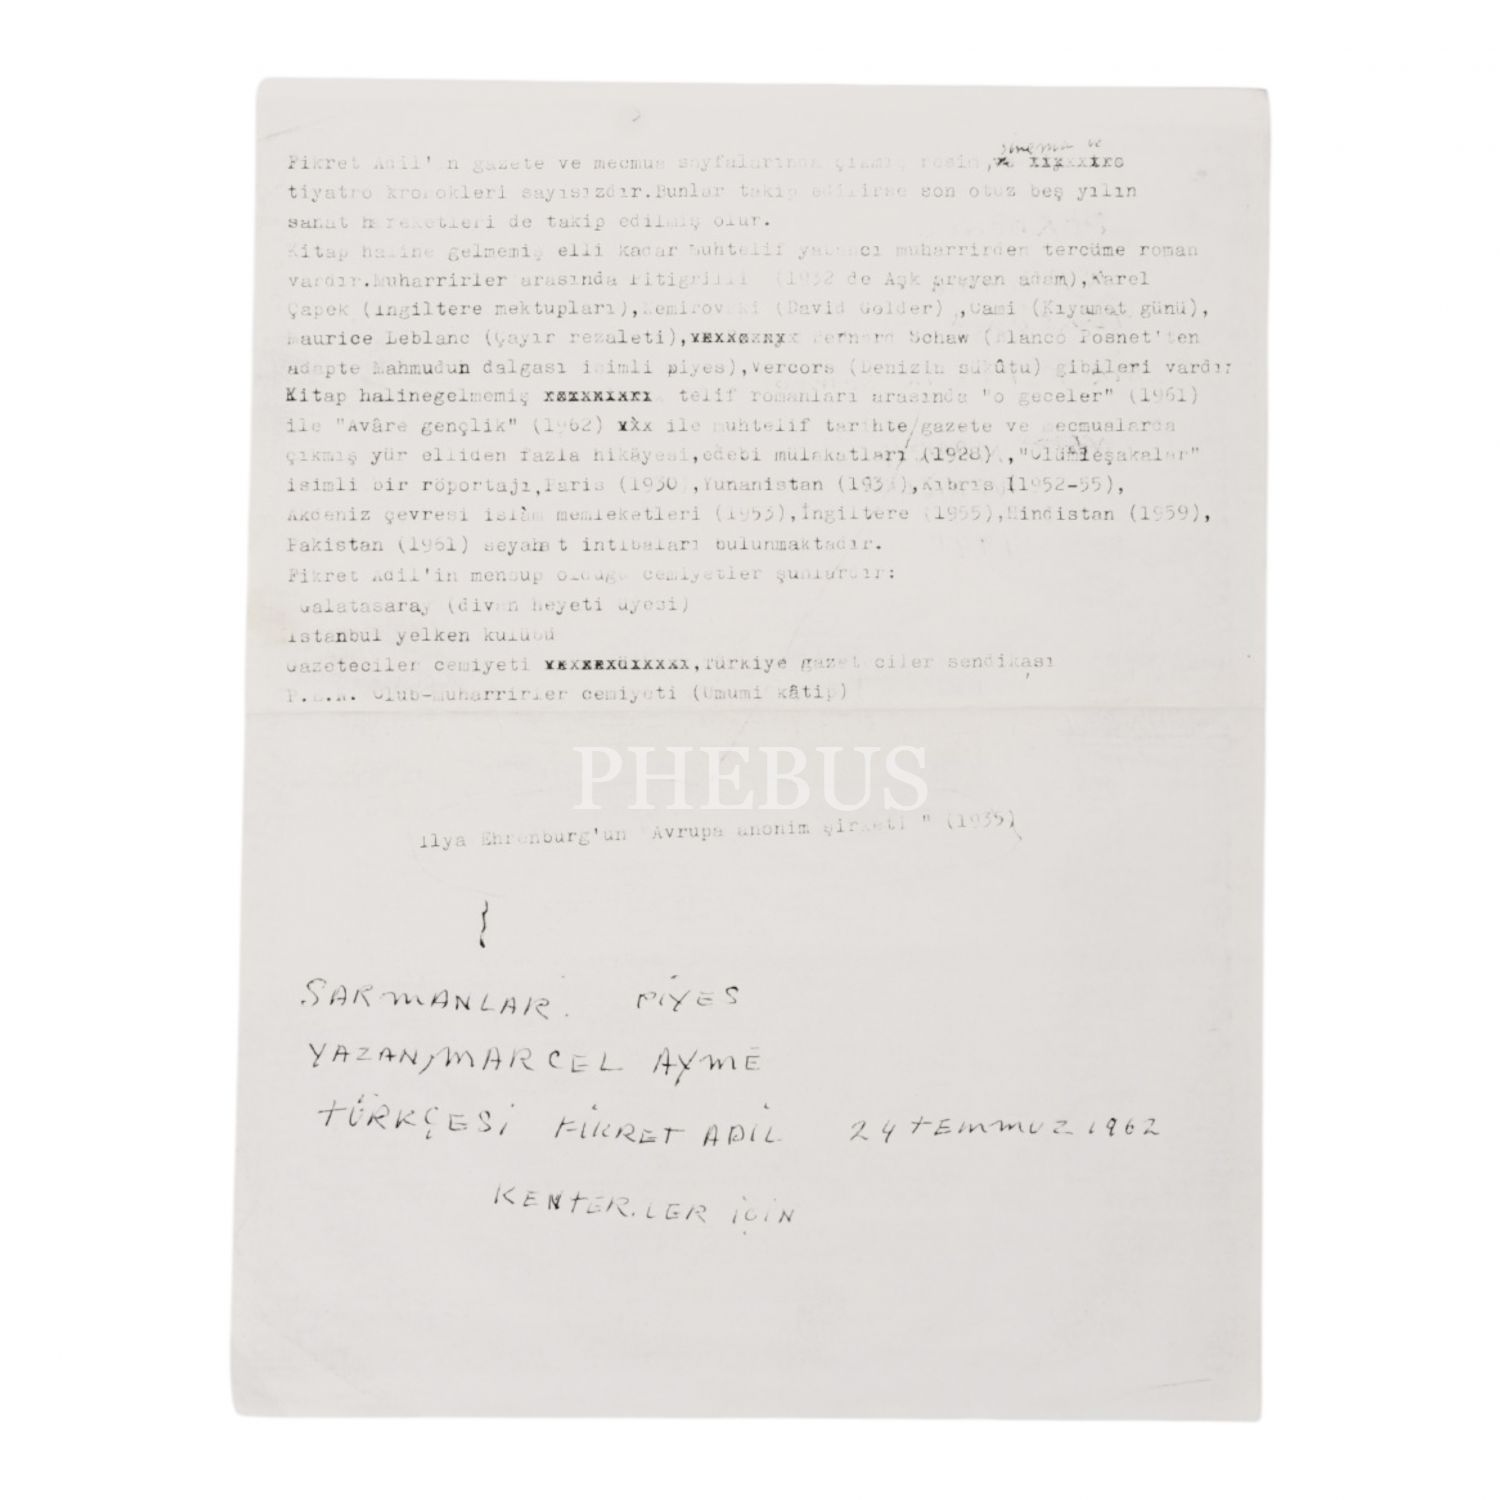 Fikret Adil'in gazete ve mecmua sayfalarında çıkmış resim, sinema ve
tiyatro kronokleri sayısızdır.Bunlar takip edilirse son otuz beş yılın
sanat hareketleri de takip edilmiş olur.
Kitap haline gelmemiş elli kadar muhtelif yabancı muharrirden tercüme roman
vardır.Muharrirler arasında Pitigrilli (1932 de Aşk arayan adam),Karel
Çapek (ingiltere mektupları),Nemirovski (David Golder) ,Cami (Kıyamet günü),
Maurice Leblanc (Çayır rezaleti), Bernard Schaw (Blanco Posnet'ten
adapte Mahmudun dalgası isimli piyes),Vercors (Denizin sükûtu) gibileri vardır
Kitap halinegelmemiş telif romanları arasında "o geceler" (1961)
ile "Avâre gençlik" (1962) ile muhtelif tarihte/gazete ve mecmualarda
çıkmış yür elliden fazla hikâyesi,edebi mülakatları (1928),
isimli bir röportajı,Paris (1930),Yunanistan ,Kıbrıs (1952-55),
Akdeniz çevresi islâm memleketleri (1953),İngiltere (1955),Hindistan (1959),
Pakistan (1961) seyahat intibaları bulunmaktadır.
Fikret Adil'in mensup olduğu cemiyetler şunlardır:
Galatasaray (divan heyeti üyesi)
istanbul yelken kulübü
Gazeteciler cemiyeti ,Türkiye gazeteciler sendikası
P.E.N. Club-Muharrirler cemiyeti (Umumi kâtip)
PHEBUS
ilya Ehrenburg'un "Avrupa anonim şirketi " (1935)
SARMANLAR. PİYES
YAZAN, MARCEL AYME
TÜRKÇESİ FİKRET ADİL 24 TEMMUZ 1962
KENTER.LER İÇİN